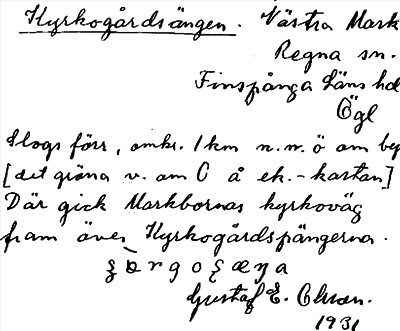 Kyrkogårdsängen. Västra Mark
Regna sn.
Finspånga läns hd
Ögl
Slogs förr, omkr. 1 km n.n.ö om bef
[det gröna v. om C å ek.-kartan]
Där gick Markbornas kyrkoväg
fram över Kyrkogårdspängerna.
Gustaf E. Olsson.
1931